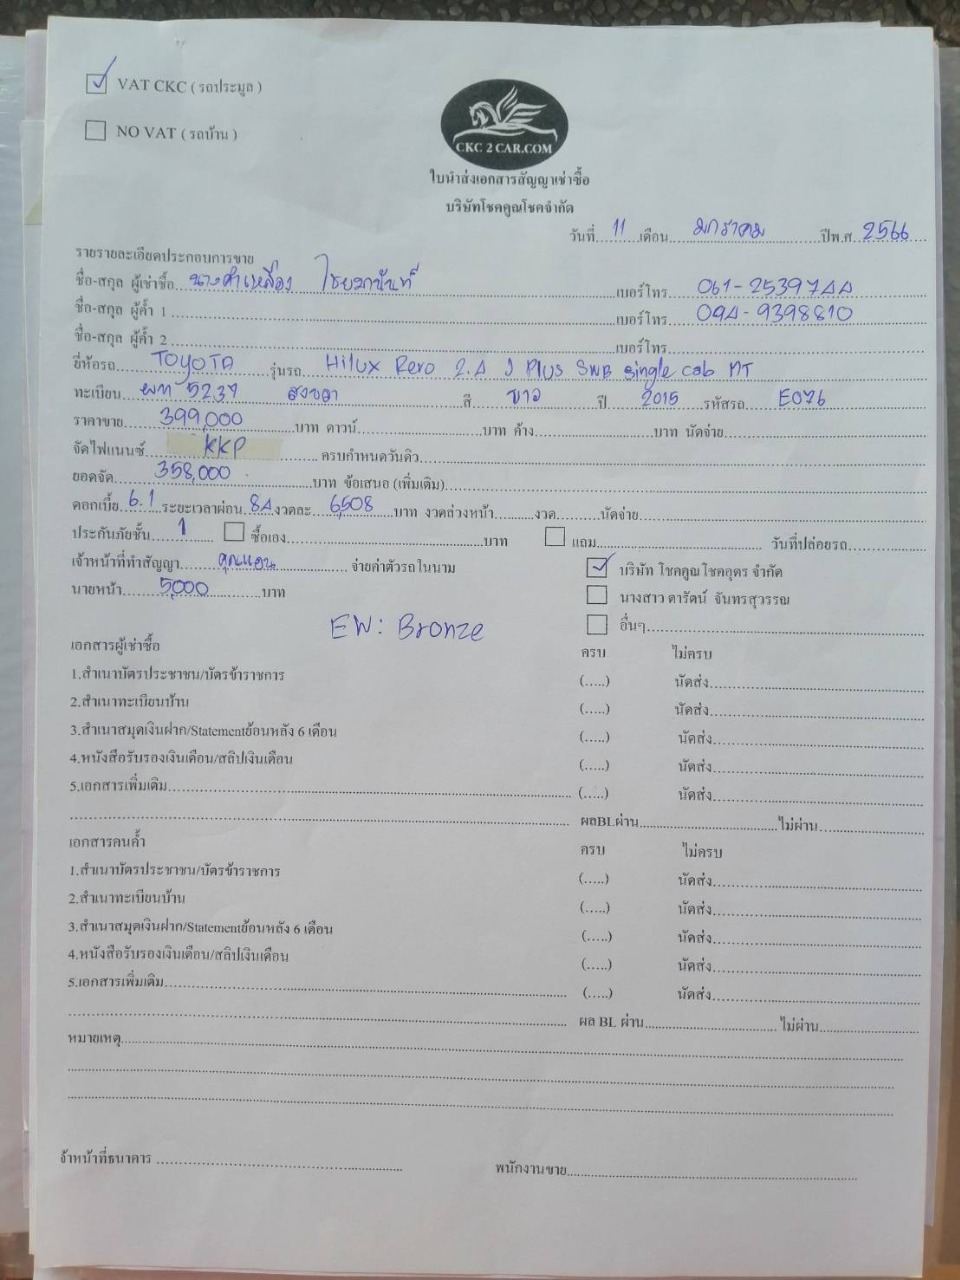 VAT CKC ( รถประมูล )
NO VAT ( รถบ้าน )
CKC 2 CAR.COM
ใบนำส่งเอกสารสัญญาเช่าซื้อ
บริษัทโชคคูณโชคจำกัด
วันที่ 11 เดือน มกราคม ปีพ.ศ 2566
รายรายละเอียดประกอบการขาย
ชื่อ-สกุล ผู้เช่าซื้อ นางคำเหลือง เบอร์โทร 061-2539744
ชื่อ-สกุล ผู้ค้ำ 1 เบอร์โทร 094-9398810
ชื่อ-สกุล ผู้ค้ำ 2 เบอร์โทร
ยี่ห้อรถ TOYOTA รุ่นรถ Hilux Revo 2.4 J Plus SWB single cab MT
ทะเบียน ผท 5237 สงขลา สี ขาว ปี 2015 รหัสรถ E076
ราคาขาย 399,000 บาท ดาวน์ บาท ค้าง บาท นัดจ่าย
จัดไฟแนนซ์ KKP ครบกำหนดวันคิว
ยอดจัด 358,000 บาท ข้อเสนอ (เพิ่มเติม)
ดอกเบี้ย 6.1 ระยะเวลาผ่อน 84 งวดละ 6,508 บาท งวดล่วงหน้า งวด นัดจ่าย
ประกันภัยชั้น 1 ซื้อเอง บาท แถม วันที่ปล่อยรถ
เจ้าหน้าที่ทำสัญญา คุณแอน จ่ายค่าตัวรถในนาม บริษัท โชคคูณโชคอุดร จำกัด
นายหน้า 5,000 บาท นางสาว ดารัตน์ จันทรสุวรรณ
EW: Bronze อื่นๆ
เอกสารผู้เช่าซื้อ ครบ ไม่ครบ
1.สำเนาบัตรประชาชน/บัตรข้าราชการ (.....) นัดส่ง
2.สำเนาทะเบียนบ้าน (.....) นัดส่ง
3.สำเนาสมุดเงินฝาก/Statementย้อนหลัง 6 เดือน (.....) นัดส่ง
4.หนังสือรับรองเงินเดือน/สลิปเงินเดือน (.....) นัดส่ง
5.เอกสารเพิ่มเติม (.....) นัดส่ง
ผลBLผ่าน ไม่ผ่าน
เอกสารคนค้ำ ครบ ไม่ครบ
1.สำเนาบัตรประชาชน/บัตรข้าราชการ (.....) นัดส่ง
2.สำเนาทะเบียนบ้าน (.....) นัดส่ง
3.สำเนาสมุดเงินฝาก/Statementย้อนหลัง 6 เดือน (.....) นัดส่ง
4.หนังสือรับรองเงินเดือน/สลิปเงินเดือน (.....) นัดส่ง
5.เอกสารเพิ่มเติม (.....) นัดส่ง
ผล BL ผ่าน ไม่ผ่าน
หมายเหตุ
จ้าหน้าที่ธนาคาร พนักงานขาย